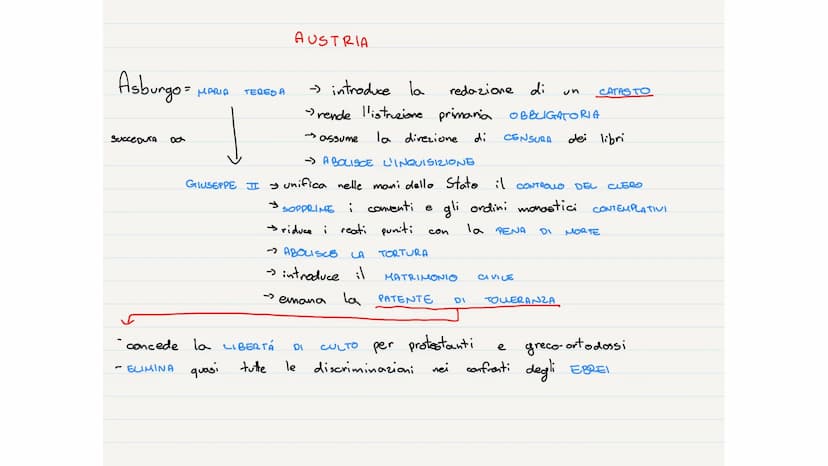 AUSTRIA
Asburgo = MARIA TERESA → introduce la redazione di un CATASTO
→ rende l'istruzione primaria OBBLIGATORIA
succeduta da → assume la direzione di CENSURA dei libri
→ ABOLISCE L'INQUISIZIONE
GIUSEPPE II → unifica nelle mani dello Stato il CONTROLLO DEL CLERO
→ SOPPRIME i conventi e gli ordini monastici CONTEMPLATIVI
→ riduce i reati puniti con la PENA DI MORTE
→ ABOLISCE LA TORTURA
→ introduce il MATRIMONIO CIVILE
→ emana la PATENTE DI TOLLERANZA
- concede la LIBERTÁ DI CULTO per protestanti e greco-ortodossi
- ELIMINA quasi tutte le discriminazioni nei confronti degli EBREI